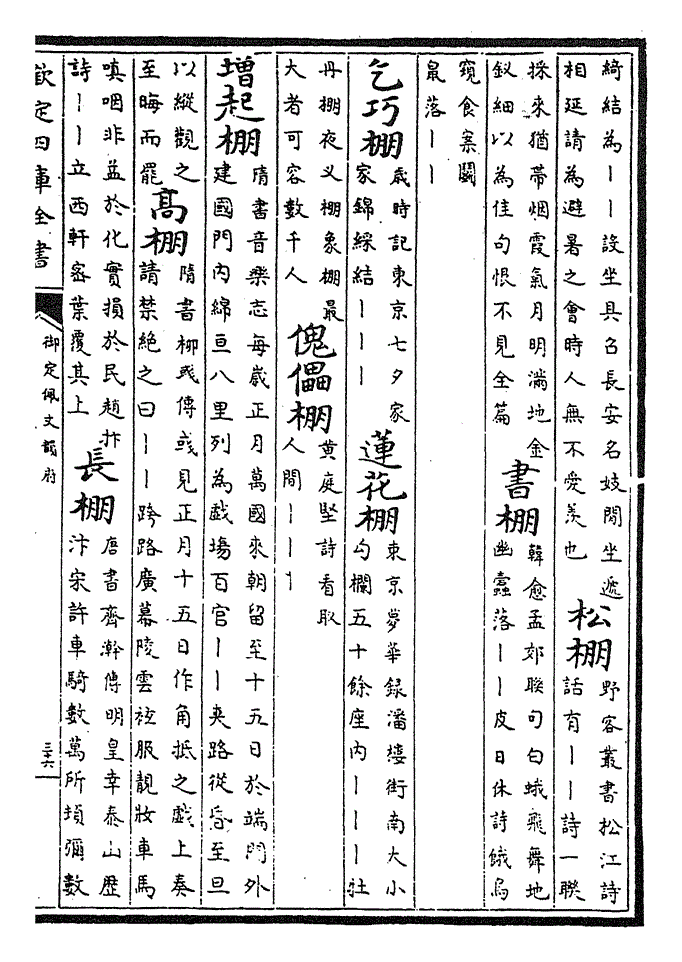 綺結為丨丨設坐具召長安名妓間坐遞
相延請為避暑之會時人無不愛羡也
松棚
野客叢書松江詩
話有丨丨詩一聯
採來猶帶烟霞氣月明滿地金
釵細以為佳句恨不見全篇
書棚
韓愈孟郊聯句白蛾飛舞地
幽蠹落丨丨皮日休詩餓烏
窺食案鬭
鼠落丨丨
乞巧棚
歲時記東京七夕家
家錦綵結丨丨丨
蓮花棚
東京夢華録潘樓街南大小
勾欄五十餘座内丨丨丨牡
丹棚夜义棚象棚最
大者可容數千人
傀儡棚
黄庭堅詩看取
人間丨丨丨
增起棚
隋書音樂志每歲正月萬國來朝留至十五日於端門外
建國門内綿亘八里列為戲塲百官丨丨夾路從昏至旦
以縱觀之
至晦而罷
高棚
隋書柳彧傳彧見正月十五日作角抵之戲上奏
請禁絶之曰丨丨跨路廣幕陵雲袨服靚妝車馬
嗔咽非益於化實損於民趙抃
詩丨丨立西軒密葉覆其上
長棚
唐書齊澣傳明皇幸泰山歷
汴宋許車騎數萬所頓彌數
欽定四庫全書
御定佩文韻府
三十六